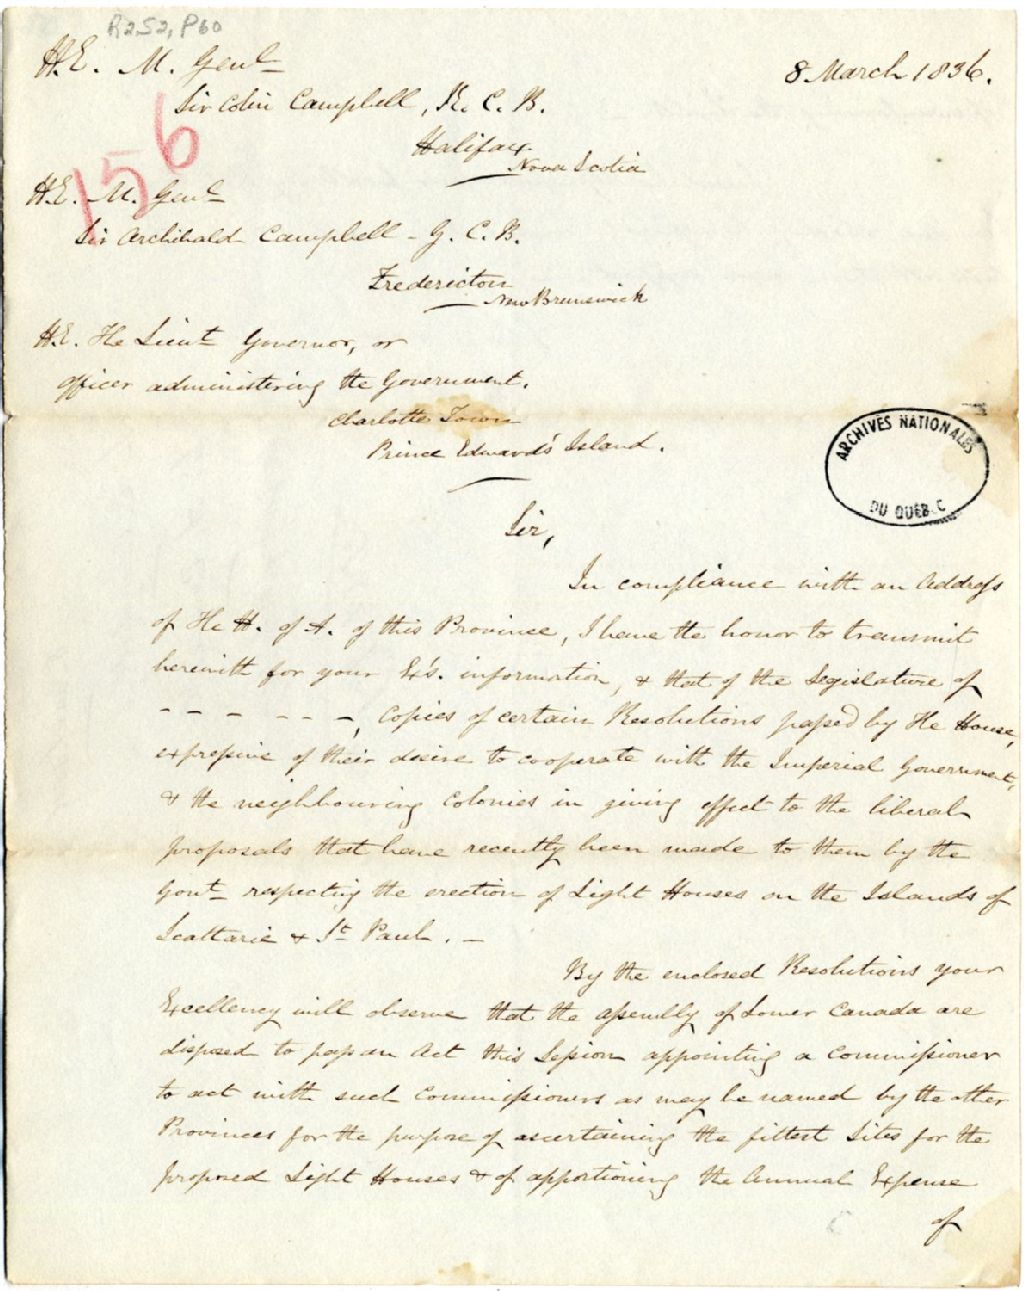 R252, P60
H.E. M. Genl
8 March 1836.
Sir Colin Campbell, K. C. B.
Halifax
Nova Scotia
156
H.E. M. Genl
Sir Archibald Campbell - G. C. B.
Fredericton
New Brunswick
H.E. The Lieut Governor, or
officer administering the Government.
Charlotte Town
Prince Edward's Island.
ARCHIVES NATIONALES
DU QUÉBEC
Sir,
In compliance with an Address
of The H. of A. of this Province, I have the honor to transmit
herewith for your Ex's. information, & that of the Legislature of
- - - - - -, Copies of certain Resolutions passed by The House,
expressive of their desire to cooperate with the Imperial Government,
& the neighbouring Colonies in giving effect to the liberal
proposals that have recently been made to them by the
Govt respecting the erection of Light Houses on the Islands of
Scattarie & St Paul. -
By the enclosed Resolutions your
Excellency will observe that the assembly of Lower Canada are
disposed to pass an Act this Session appointing a Commissioner
to act with such Commissioners as may be named by the other
Provinces for the purpose of ascertaining the fittest Sites for the
proposed Light Houses & of apportioning the Annual Expense
of